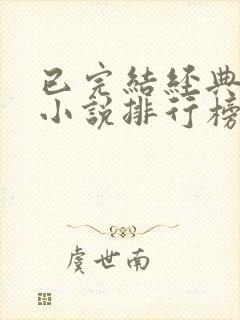 已完結經典
小說排行榜
虞世南